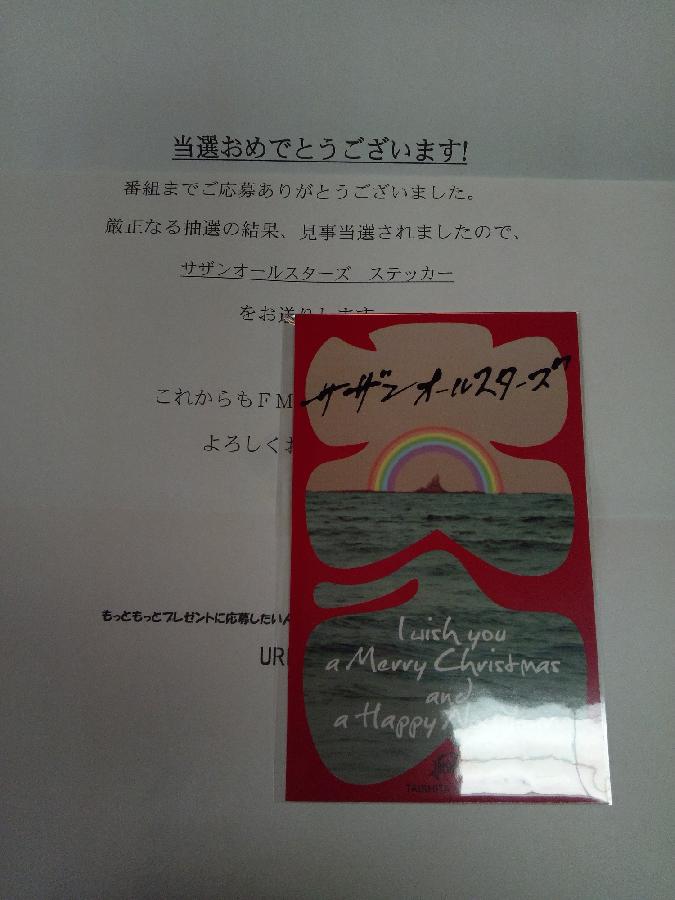 当選おめでとうございます!
番組までご応募ありがとうございました。
厳正なる抽選の結果、見事当選されましたので、
サザンオールスターズ　ステッカー
をお送りします
これからもFM
よろしくお
もっともっとプレゼントに応募したい人
サザンオールスターズ
I wish you
a Merry Christmas
and
a Happy